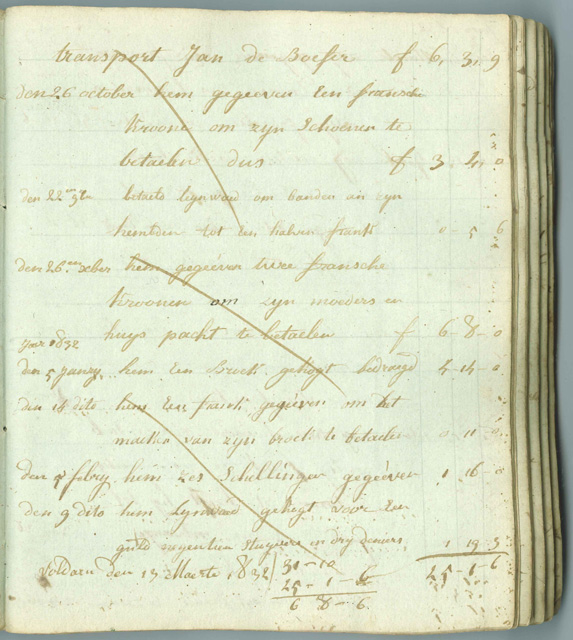 transport Jan de Boeser f 6, 3, 9
den 26 october hem gegeeven Een fransche
kroone om zyn Schoenen te
betaelen dus f 3 4, 0
den 22 betaelt lynwaed om banden an zyn
hemden tot Een halven frank 0 - 5 6
den 26 xber hem gegeéven twee fransche
kroonen om zyn moeders
huys pacht te betaelen f 6 - 8 - 0
Jaer 1832
den 5 Janry. hem Een Broek gekogt bedraegd 4 - 14 - 0
den 18 dito hem Een frank gegéeven om het
maeken van zyn broek te betaelen 0 11 0
den 5 febry hem zes Schellingen gegeéven 1 16 - 0
den 9 dito hem Lynwaed gekogt voor Een
guld negentien stuyvers en dry deniers 1 19 3
Voldaen den 13 Maerte 1832 31 - 10 25 - 1 - 6
25 - 1 - 6
6 8 - 6